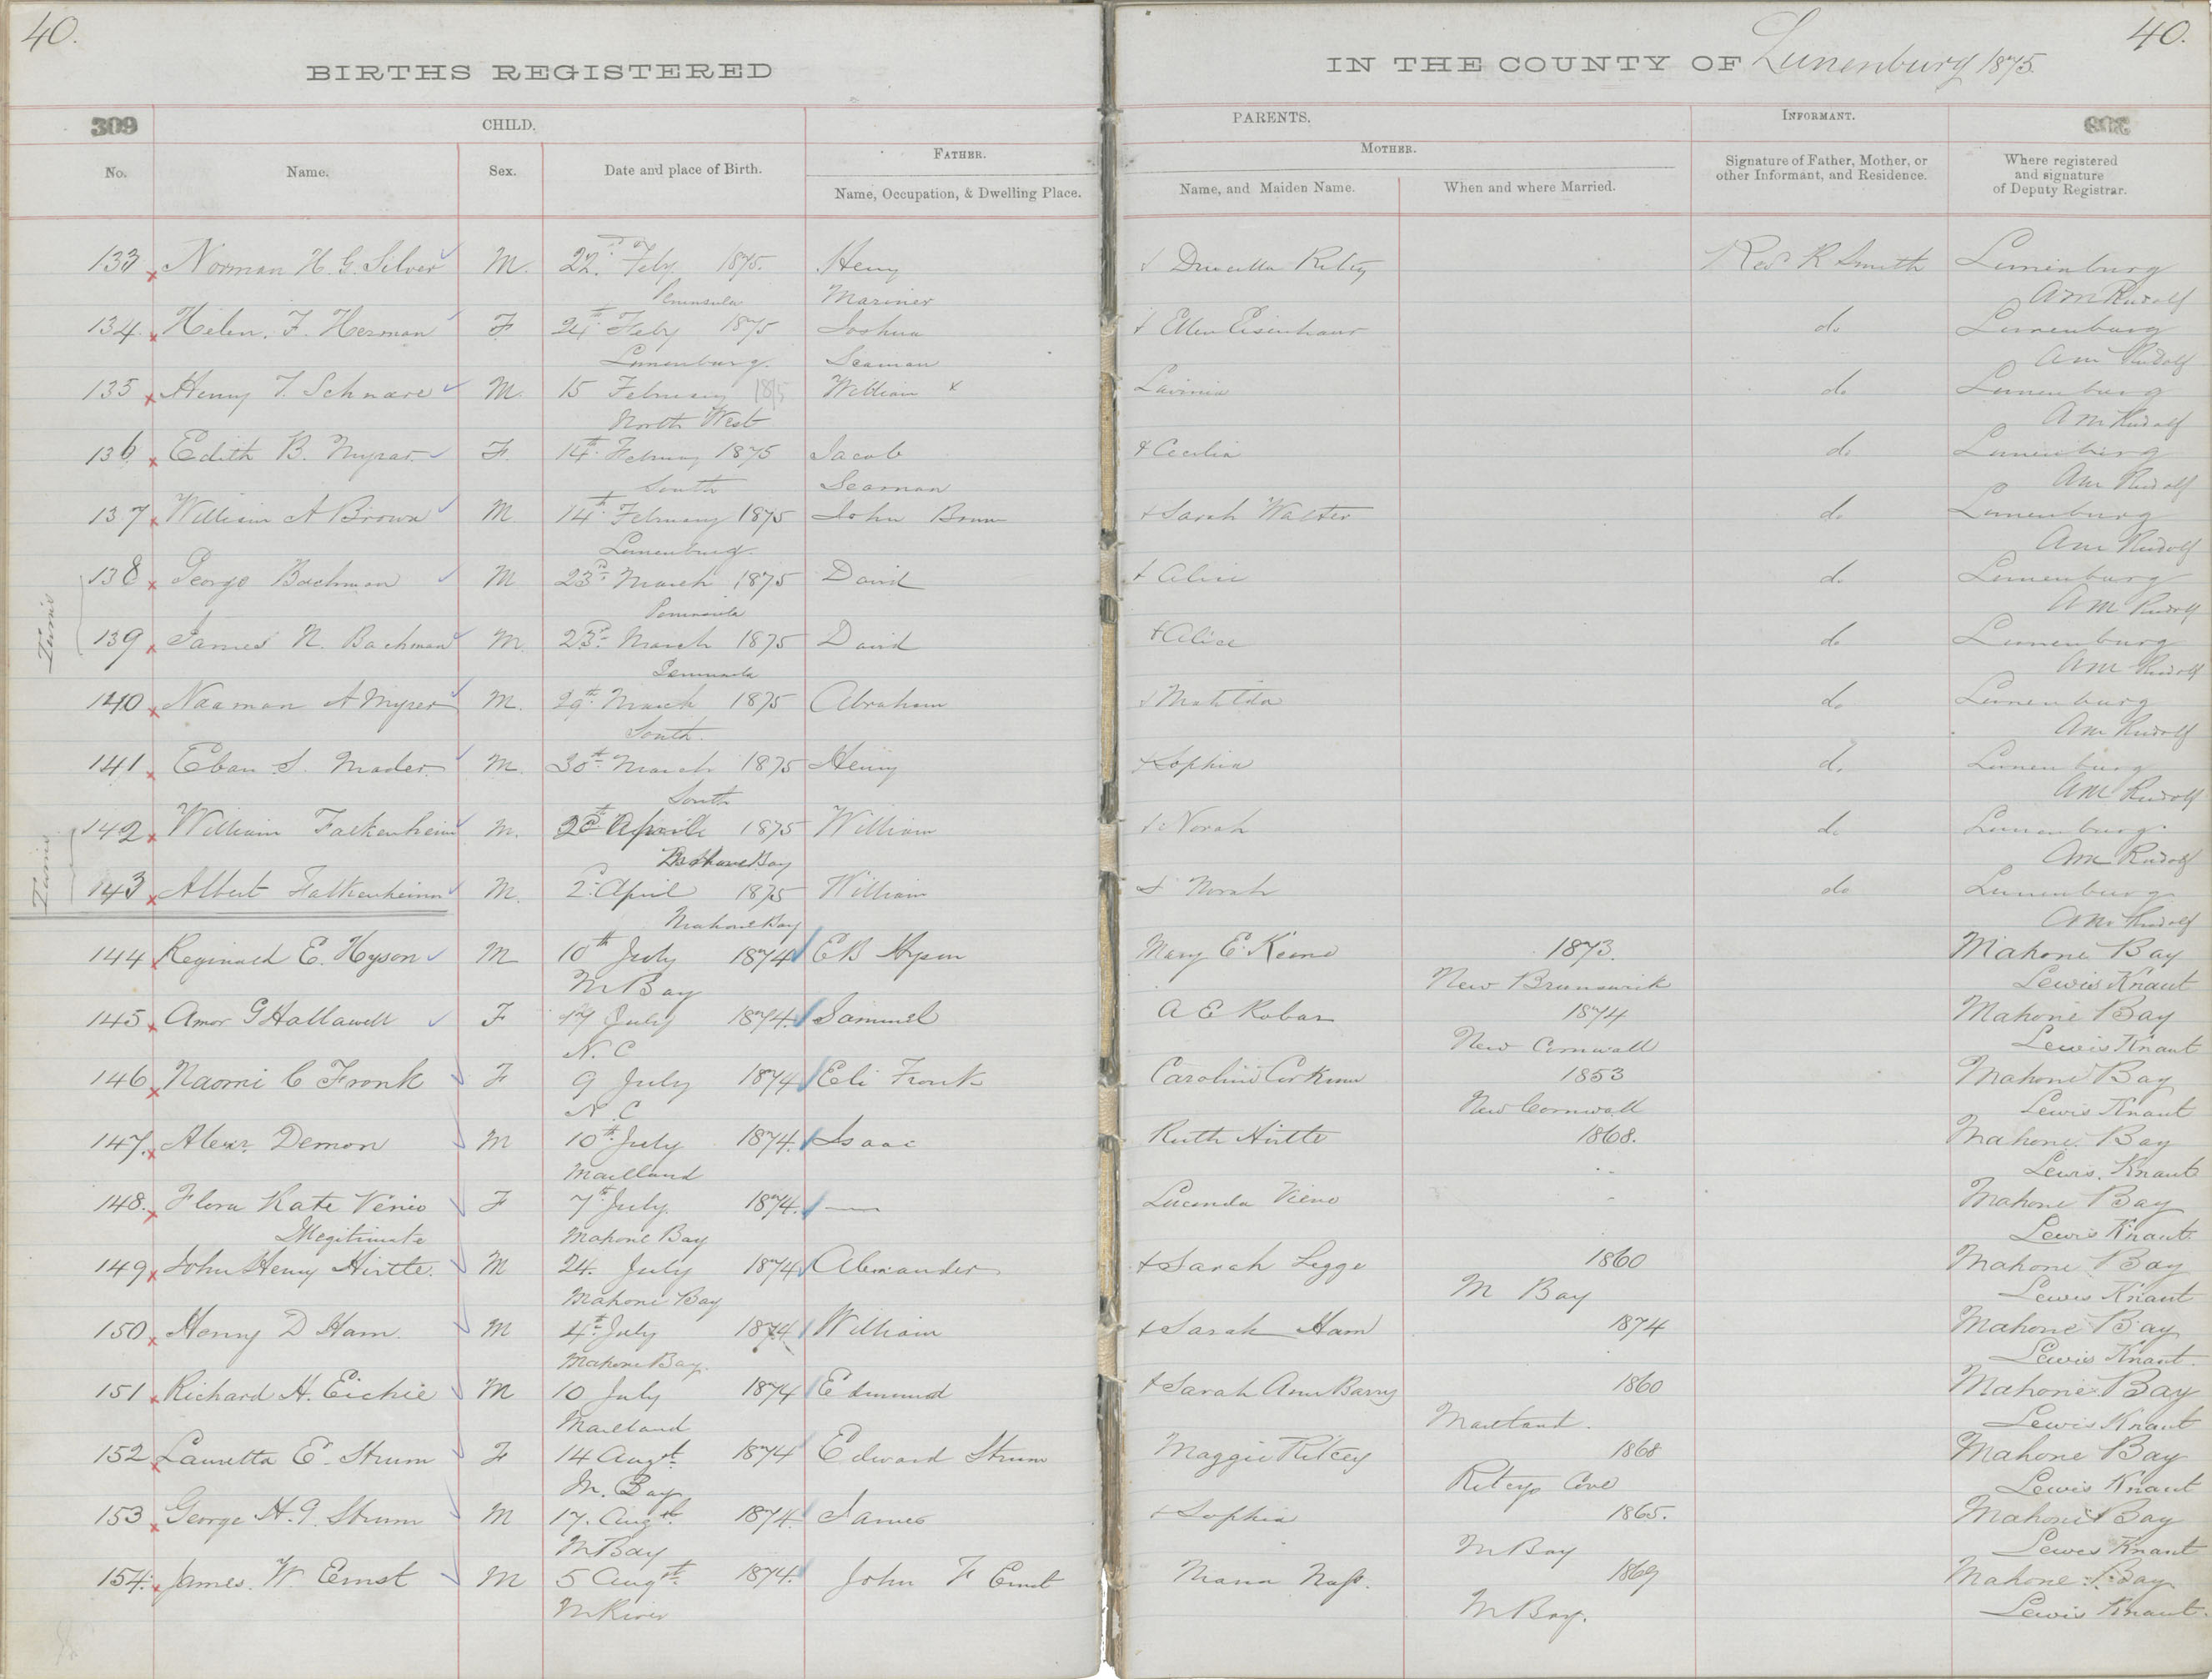 40.
40.
BIRTHS REGISTERED
IN THE COUNTY OF Lunenburg 1875.
309
CHILD.
PARENTS.
INFORMANT.
309
No.
Name.
Sex.
Date and place of Birth.
FATHER.
Name, Occupation, & Dwelling Place.
MOTHER.
Name, and Maiden Name.
When and where Married.
Signature of Father, Mother, or
other Informant, and Residence.
Where registered
and signature
of Deputy Registrar.
133 Norman H. G. Silver M. 22nd Feby 1875. Henry & Drucilla Ritcy Revd R Smith Lunenburg
Peninsula Mariner A M Rudolf
134. Helen. F. Herman F 24th Feby 1875 Joshua & Ellen Eisenhaur do Lunenburg
Lunenburg. Seaman A M Rudolf
135 Henry T. Schnare M. 15 February 1875 William & Lavinia do Lunenburg
North West A M Rudolf
136 Edith B. Myrar F 14th February 1875 Jacob & Cecilia do Lunenburg
South Seaman A M Rudolf
137 William A Brown M 14th February 1875 John Brown & Sarah Walter do Lunenburg
Lunenburg. A M Rudolf
Twins
138 George Bachman M 23d March 1875 David & Alice do Lunenburg
Peninsula A M Rudolf
139 James N. Bachman M. 23d March 1875 David & Alice do Lunenburg
Peninsula A M Rudolf
140 Naaman A Myrer M. 29th March 1875 Abraham & Matilda do Lunenburg
South. A M Rudolf
141 Eban S. Mader M. 30th March 1875 Henry & Sophia do Lunenburg
South A M Rudolf
Twins
142 William Falkenheim M. 2d April 1875 William & Norah do Lunenburg
Mahone Bay A M Rudolf
143 Albert Falkenheim M. 2d April 1875 William & Norah do Lunenburg
Mahone Bay A M Rudolf
144 Reginald E. Hyson M 10th July 1874 E B Hyson Mary E. Keans 1873. Mahone Bay
M Bay New Brunswick Lewis Knaut
145 Amor G Hallawell F July 1874. Samuel A E Robar 1874 Mahone Bay
N. C New Cornwall Lewis Knaut
146 Naomi C Fronk F 9 July 1874 Eli Fronk Caroline Corkum 1853 Mahone Bay
N. C New Cornwall Lewis Knaut
147. Alexr. Demon M 10th July 1874. Isaac Ruth Hirtle 1868. Mahone Bay
Maitland Lewis Knaut
148. Flora Kate Venio F 7th July. 1874. — Lucinda Vieno Mahone Bay
Illegitimate Mahone Bay Lewis Knaut
149 John Henry Hirtle. M 24. July 1874 Alexander & Sarah Legge 1860 Mahone Bay
Mahone Bay M Bay Lewis Knaut
150 Henry D Ham. M 4th July 1874 William & Sarah Ham 1874 Mahone Bay
Mahone Bay. Lewis Knaut.
151 Richard H. Eichie M 10 July 1874 Edmund & Sarah Ann Barry 1860 Mahone Bay
Maitland Maitland. Lewis Knaut
152 Lauretta E. Strum F 14 Augt. 1874 Edward Strum Maggie Ritcey 1868 Mahone Bay
M. Bay Ritceys Cove Lewis Knaut
153 George H. G. Strum M 17. Augt. 1874. James & Sophia 1865. Mahone Bay
M Bay M Bay Lewis Knaut
154. James. W. Ernst M 5 Augt. 1874. John F Ernst Maria Nass. 1869 Mahone Bay
M River M Bay. Lewis Knaut.